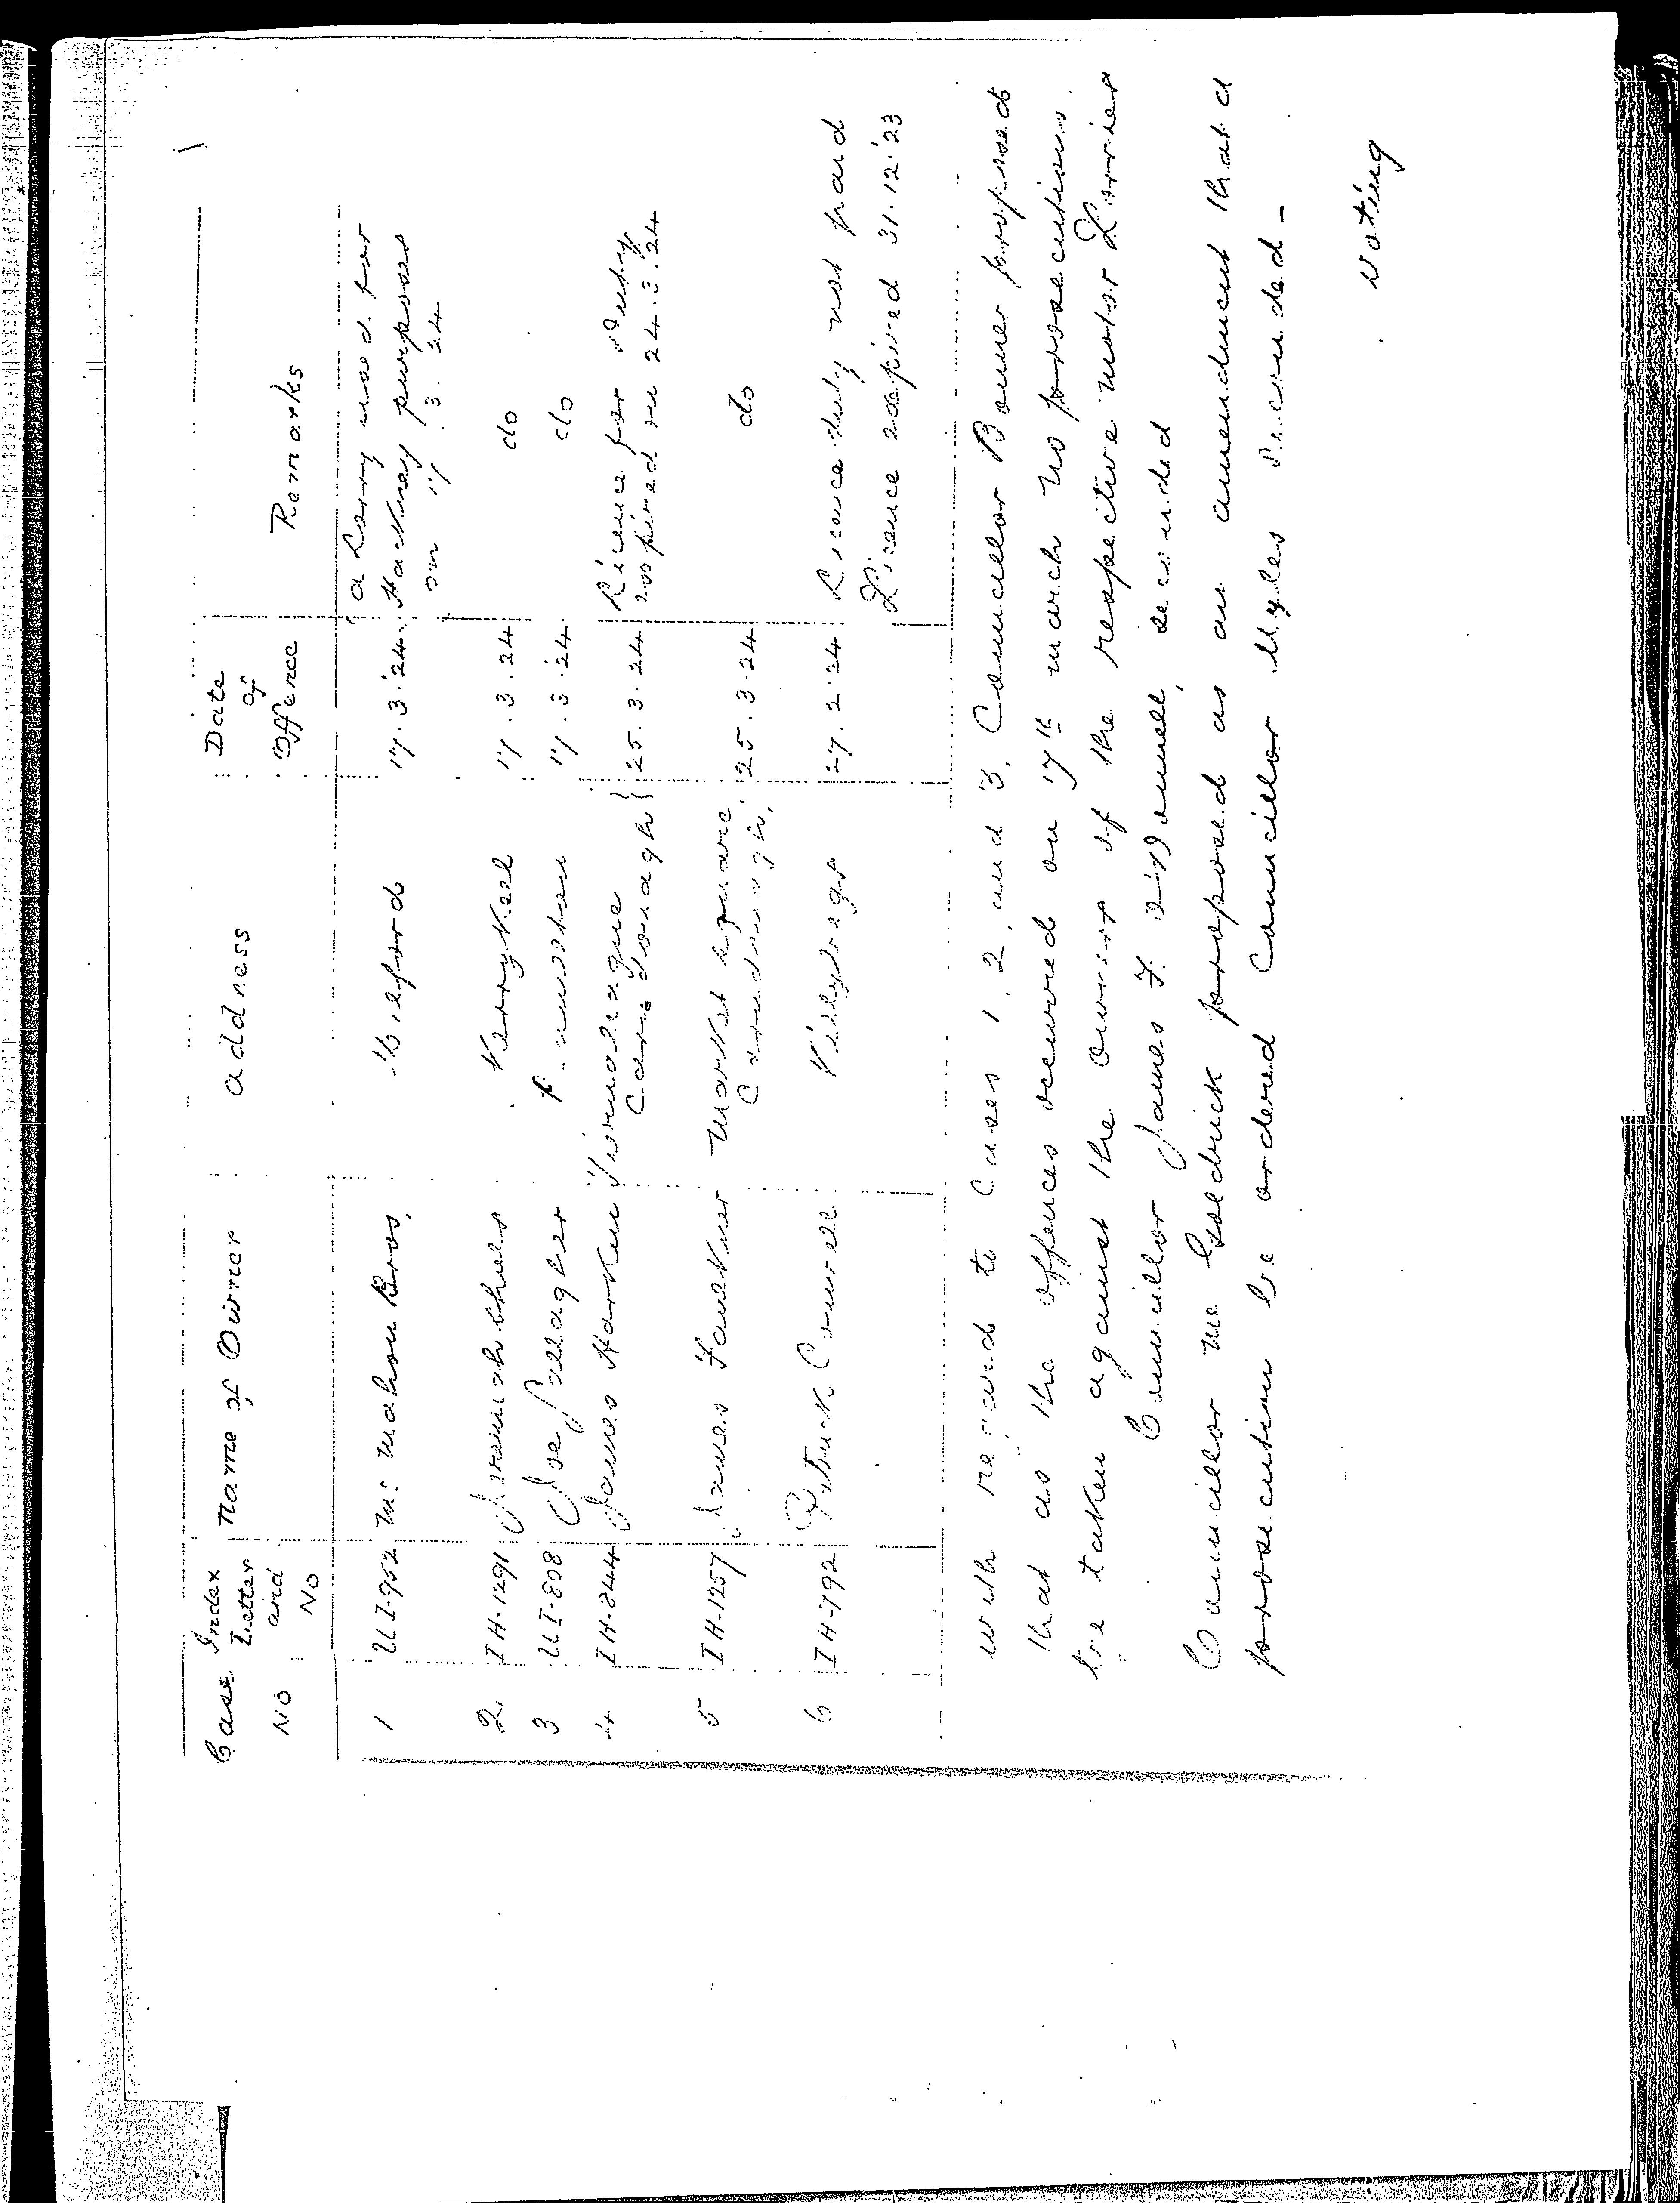 Case No Index Letter and No Name of Owner Address Date of Offence Remarks
1 UI-952 McMahon Bros, Milford 17.3.'24 a Lorry used for Hackney purposes on 17.3.24
2. IH-1291 Kerrykeel 17.3.24 do
3 UI-808 Joe Gallagher 17.3.24 do
4 IH-844 James Harkin Carndonagh 25.3.24 Licence for Duty expired on 24.3.24
5 IH-1257 James Faulkner Market Square Carndonagh, 25.3.24 do
6 IH-792 Patrick Connell Killybegs 27.2.24 Licence duty not paid
Licence expired 31.12.'23
with regard to Cases 1, 2, and 3, Councillor Bonner proposed
that as the offences occurred on 17th march no prosecutions
be taken against the owners of the respective motor Lorries
Councillor James F. seconded
Councillor Mc Goldrick proposed as an amendment that a
prosecution be ordered Councillor Myles seconded -
voting